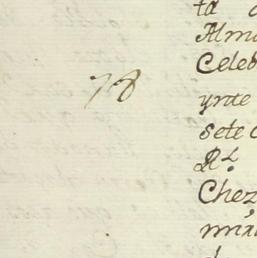 ta
Alm
Celeb
78
ynte
sete
Rl.
Chez